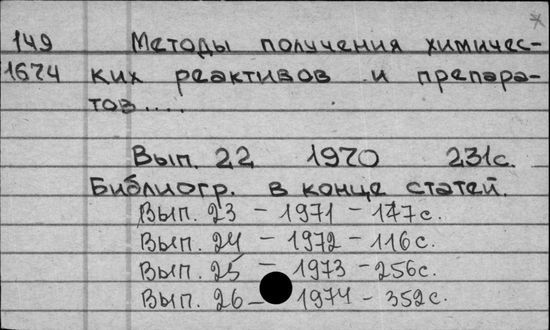 149 Методы получения химичес-
1674 ких реактивов и препара-
тов....
Вып. 22 1970 231с.
Библиогр. в конце статей.
Вып. 23 – 1971 – 147с.
Вып. 24 – 1972 – 116с.
Вып. 25 – 1973 – 256с.
Вып. 26 – 1974 – 352с.